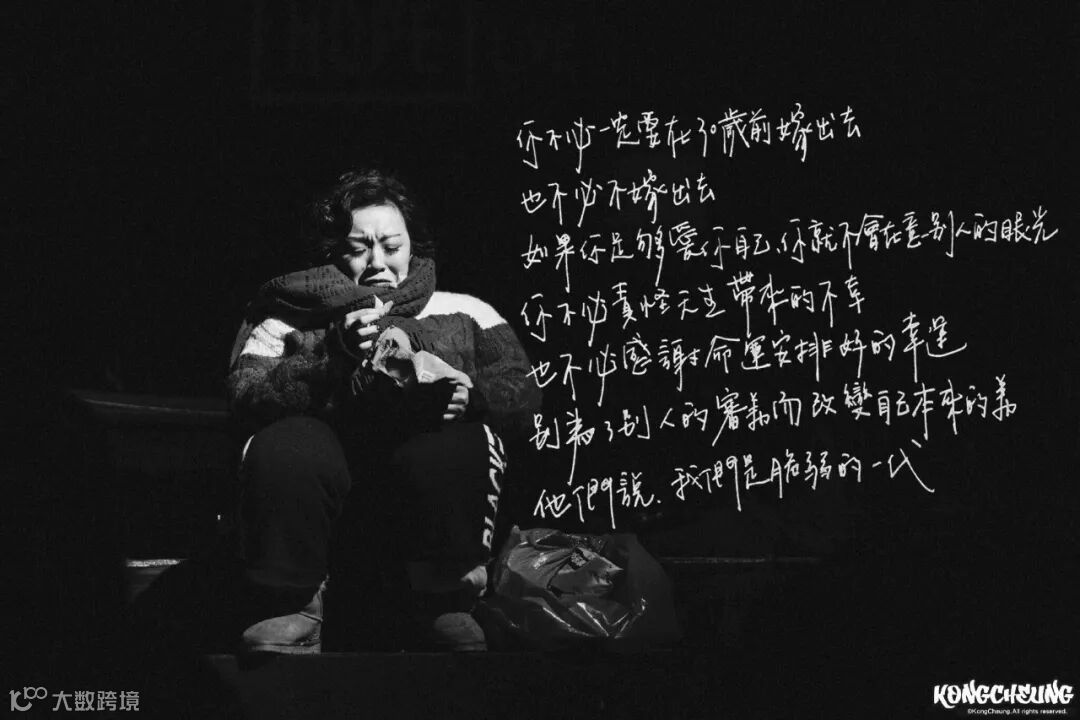 你不必一定要在30歲前嫁出去
也不必不嫁出去
如果你足够愛你自己,你就不會在意别人的眼光
你不必責怪天生帶來的不幸
也不必感謝命運安排好的幸運
别為了别人的審美而改變自己本來的美
他們說.我們是脆弱的一代
BLACK
大数跨境
KONGCHEUNG
©KongCheung.All rights reserved.